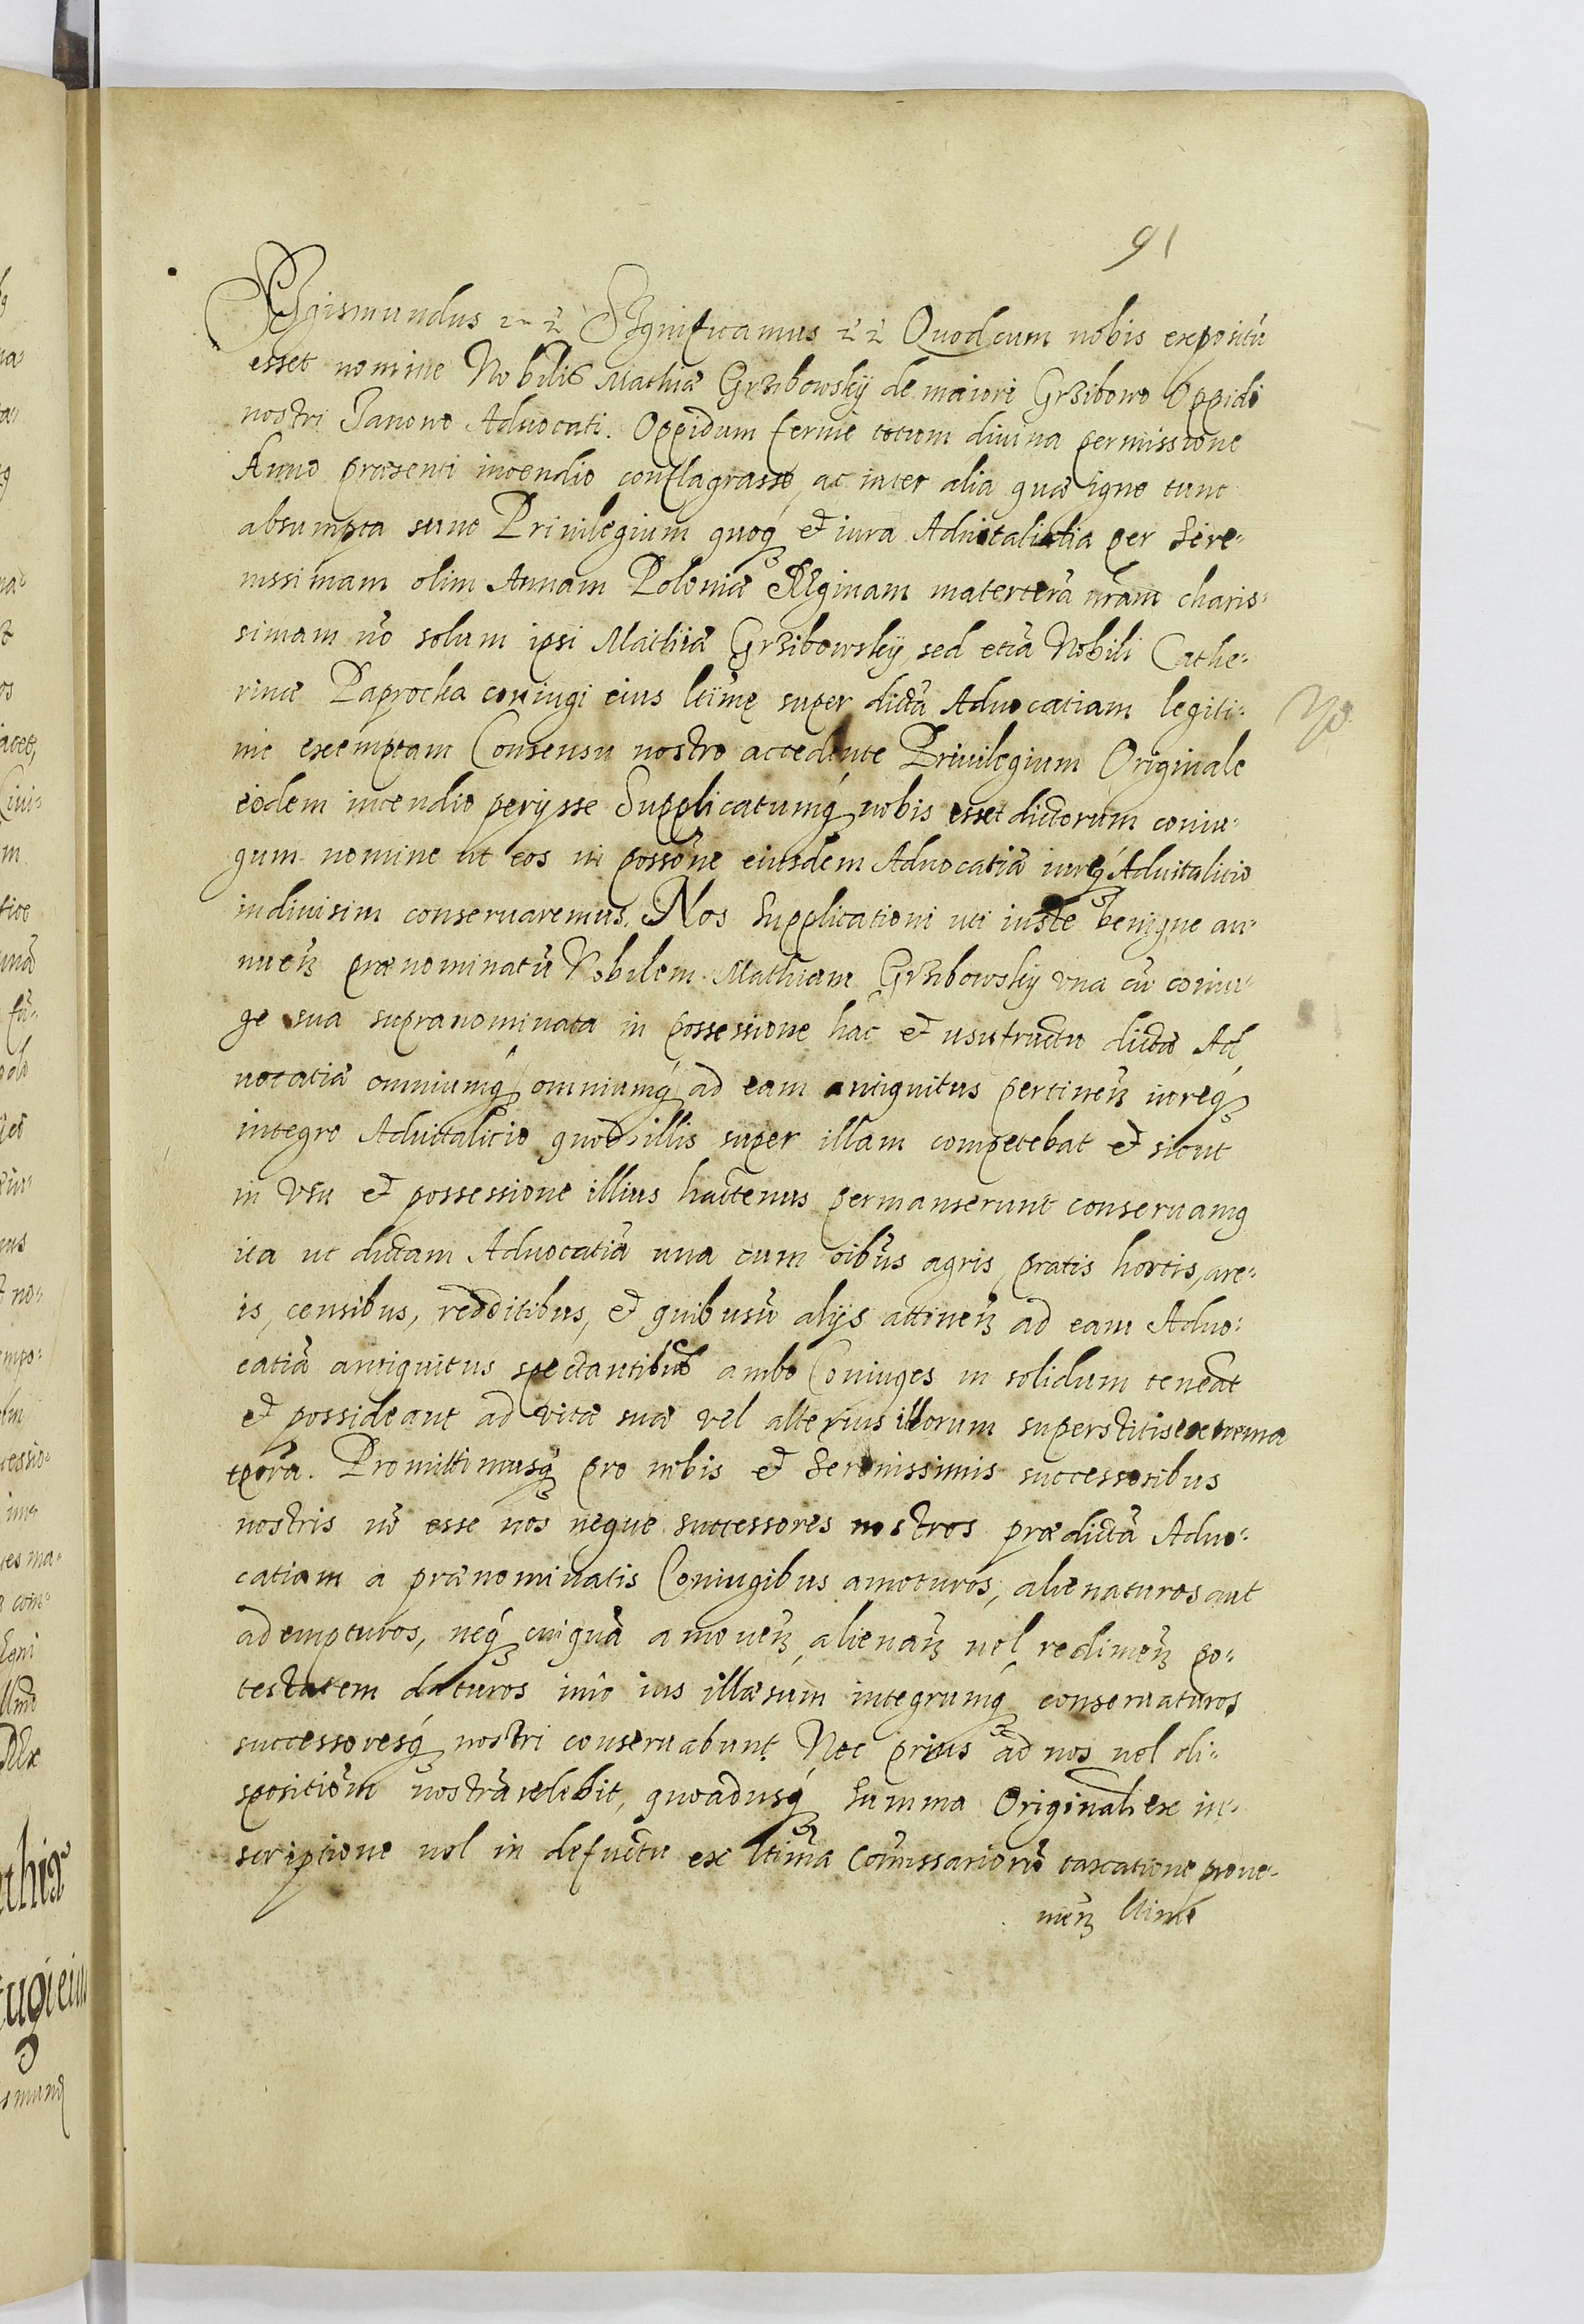 91
Sigismundus etc etc Significamus etc etc Quod cum nobis expositū
esset nomine Nobilis Mathiæ Grzibowskÿ de maiori Grzibowo Oppidi
nostri Janowo Aduocati. Oppidum ferme totum diuina permissione
Anno præsenti incendio conflagrasse, ac inter alia quæ igne tunc
absumpta sunt Priuilegium quoq₃ et iura Aduitalitia per Sere-
nissimam olim Annam Poloniæ Reginam materterā nrām charis-
simam nō solum ipsi Mathiæ Grzibowskÿ, sed etiā Nobili Cathe-
rinæ Paprocka coniugi eius ltimę super dictā Aduocatiam legiti-
me exemptam Consensu nostro accedente Priuilegium Originale
eodem incendio perÿsse Supplicatumq₃ nobis esset dictorum coniu-
gum nomine ut eos in possōne eiusdem Aduocatiæ iureq₃ Aduitalitio
indiuisim conseruaremus. Nos Supplicationi uti iuste benigne an-
nuen̄ prænominatū Nobilem Mathiam Grzibowskÿ vna cū coniu-
ge sua supranominata in possessione hac et usufructu dictæ Ad
uocatiæ omniumq₃ omniumq₃ ad eam antiquitus pertinen̄ iureq₃
integro Aduitalitio quod illis super illam competebat et sicut
in vsu et possessione illius hactenus permanserunt conseruamq
ita ut dictam Aduocatiā una cum oibus agris, pratis hortis, are-
is, censibus, redditibus, et quibusuis alÿs attinen̄ ad eam Aduo-
catiā antiquitus spectantibus ambo Coniuges in solidum teneāt
et possideant ad vitæ suæ vel alterius illorum superstitis extrema
tpora. Promittimusq₃ pro nobis et Serenissimis successoribus
nostris nō esse nos neque successores nostros prædictā Aduo-
catiam a prænominatis Coniugibus amoturos, alienaturos aut
adempturos, neq₃ cuiquā amouen̄, alienan̄ uel redimen̄ po-
testatem daturos imo ius illæsum integrumq₃ conseruaturos
successoresq₃ nostri conseruabunt. Nec prius ad nos uel di-
spositiom̄ nostrā redibit, quoadusq₃ Summa Originali ex in-
scriptione uel in defectu ex ltima Comissariorū taxatione proue-
nien̄ ltime